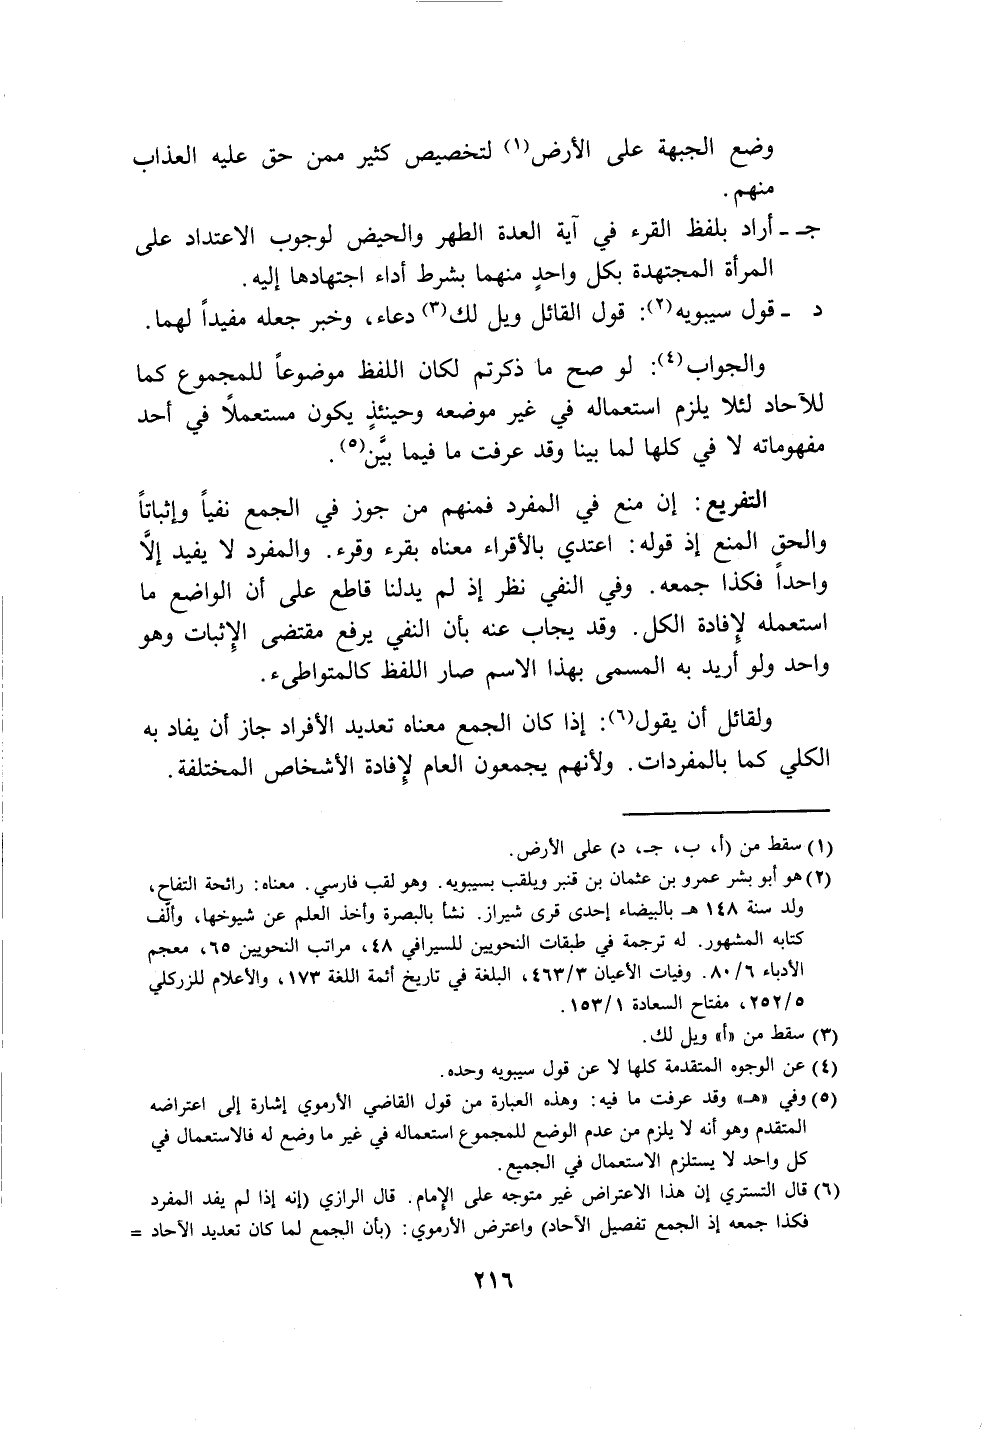 وضع الجبهة على الأرض(١) لتخصيص كثير ممن حق عليه العذاب
منهم.
جـ ـ أراد بلفظ القرء في آية العدة الطهر والحيض لوجوب الاعتداد على
المرأة المجتهدة بكل واحدٍ منهما بشرط أداء اجتهادها إليه.
د ـ قول سيبويه(٢): قول القائل ويل لك(٣) دعاء، وخبر جعله مفيداً لهما.
والجواب(٤): لو صح ما ذكرتم لكان اللفظ موضوعاً للمجموع كما
للآحاد لئلا يلزم استعماله في غير موضعه وحينئذٍ يكون مستعملاً في أحد
مفهوماته لا في كلها لما بينا وقد عرفت ما فيما بيَّن(٥).
التفريع: إن منع في المفرد فمنهم من جوز في الجمع نفياً وإثباتاً
والحق المنع إذ قوله: اعتدي بالأقراء معناه بقرء وقرء. والمفرد لا يفيد إلَّا
واحداً فكذا جمعه. وفي النفي نظر إذ لم يدلنا قاطع على أن الواضع ما
استعمله لإفادة الكل. وقد يجاب عنه بأن النفي يرفع مقتضى الإثبات وهو
واحد ولو أريد به المسمى بهذا الاسم صار اللفظ كالمتواطىء.
ولقائل أن يقول(٦): إذا كان الجمع معناه تعديد الأفراد جاز أن يفاد به
الكلي كما بالمفردات. ولأنهم يجمعون العام لإفادة الأشخاص المختلفة.
(١) سقط من (أ، ب، جـ، د) على الأرض.
(٢) هو أبو بشر عمرو بن عثمان بن قنبر ويلقب بسيبويه. وهو لقب فارسي. معناه: رائحة التفاح،
ولد سنة ١٤٨ هـ بالبيضاء إحدى قرى شيراز. نشأ بالبصرة وأخذ العلم عن شيوخها، وألَّف
كتابه المشهور. له ترجمة في طبقات النحويين للسيرافي ٤٨، مراتب النحويين ٦٥، معجم
الأدباء ٨٠/٦. وفيات الأعيان ٤٦٣/٣، البلغة في تاريخ أئمة اللغة ١٧٣، والأعلام للزركلي
٢٥٢/٥، مفتاح السعادة ١٥٣/١.
(٣) سقط من «أ» ويل لك.
(٤) عن الوجوه المتقدمة كلها لا عن قول سيبويه وحده.
(٥) وفي «هـ» وقد عرفت ما فيه: وهذه العبارة من قول القاضي الأرموي إشارة إلى اعتراضه
المتقدم وهو أنه لا يلزم من عدم الوضع للمجموع استعماله في غير ما وضع له فالاستعمال في
كل واحد لا يستلزم الاستعمال في الجميع.
(٦) قال التستري إن هذا الاعتراض غير متوجه على الإمام. قال الرازي (إنه إذا لم يفد المفرد
فكذا جمعه إذ الجمع تفصيل الآحاد) واعترض الأرموي: (بأن الجمع لما كان تعديد الآحاد =
٢١٦